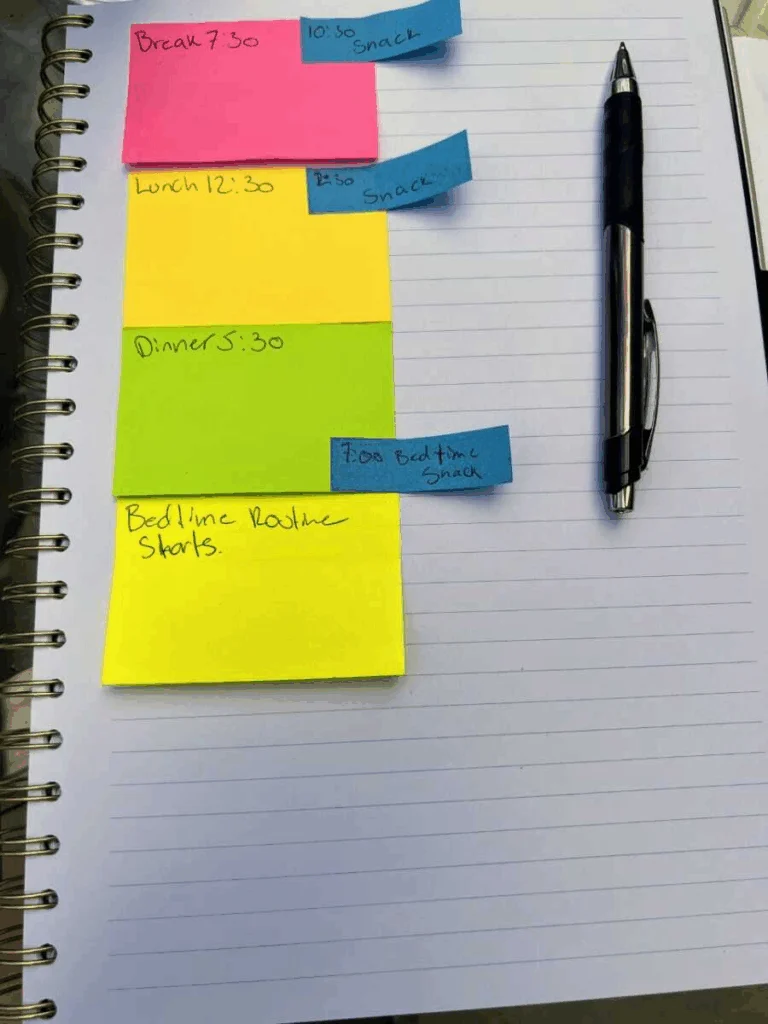 Break 7:30
10:30
Snack
Lunch 12:30
2:30
Snack
Dinner 5:30
7:00 Bedtime
Snack
Bedtime Routine
Starts.